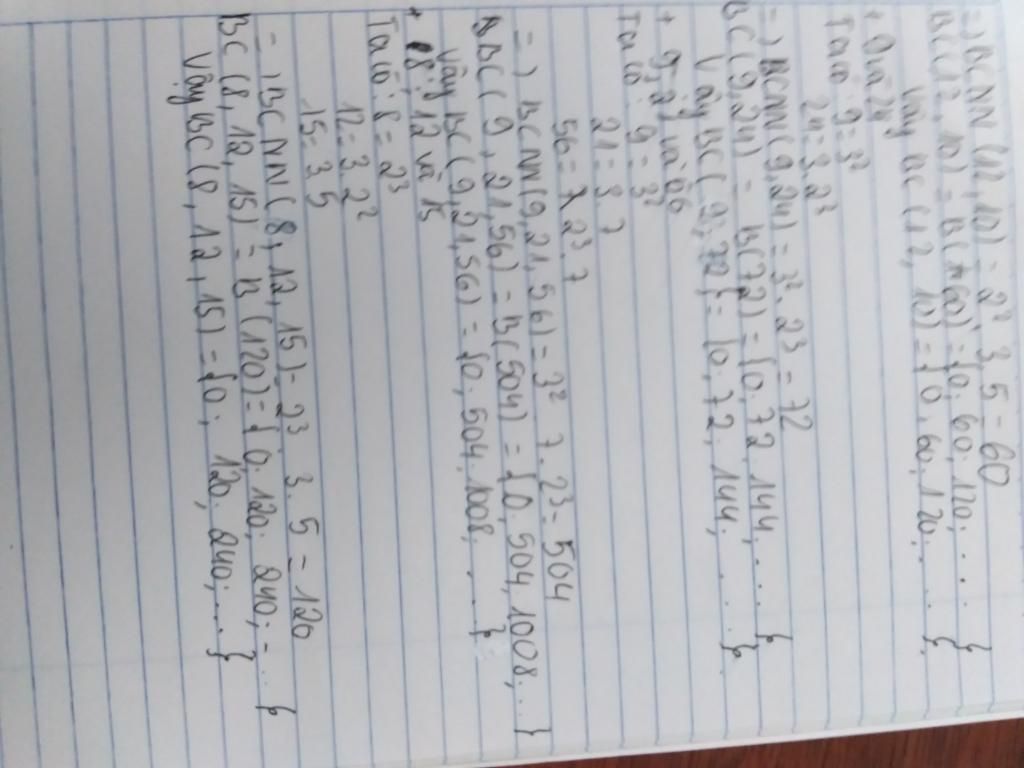 =) BCNN (12, 10) = 2² 3 5 = 60
BC(12, 10) = B(60) = {0; 60; 120; ... }
Vậy BC (12, 10) = {0, 60, 120. ... }
+ 9 và 24
Ta có: 9 = 3²
24 = 3. 2³
=) BCNN(9, 24) = 3². 2³ = 72
BC(9, 24) = B(72) = {0. 72, 144, ... }
Vậy BC( 9; 72} = {0, 72, 144, ... }.
+ 9, 21 và 56
Ta có: 9 = 3²
21 = 3. 7
56 = 2³. 7
=) BCNN(9, 21, 56) = 3² 7. 2³ = 504
BC( 9, 21, 56) = B(504) = {0; 504, 1008, ...}
Vậy BC( 9, 21, 56) = {0, 504, 1008, ... }
+ 8; 12 và 15
Ta có: 8 = 2³
12 = 3. 2²
15 = 3. 5
=) BCNN (8, 12, 15) = 2³ 3. 5 = 120
BC (8, 12, 15) = B (120) = { 0, 120; 240; ... }
Vậy BC (8, 12, 15) = {0; 120, 240, ...}